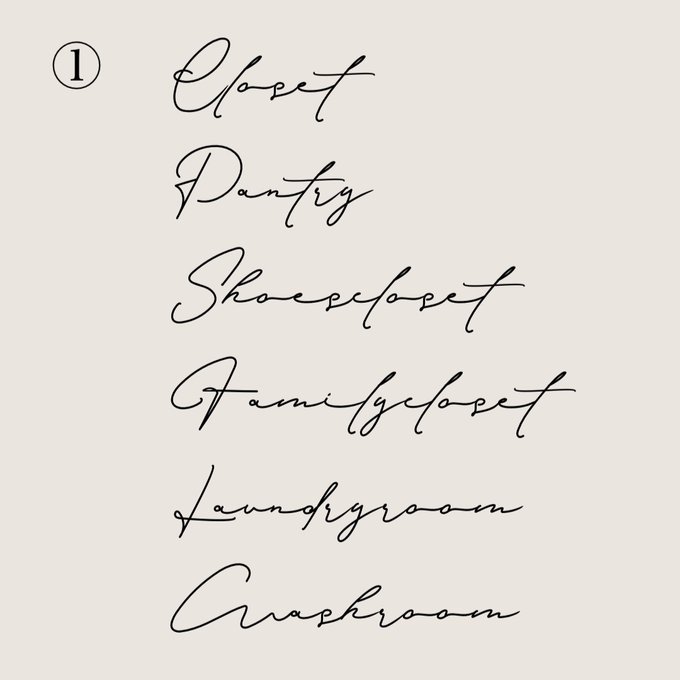 ①
Closet
Pantry
Shoescloset
Familycloset
Laundryroom
Washroom